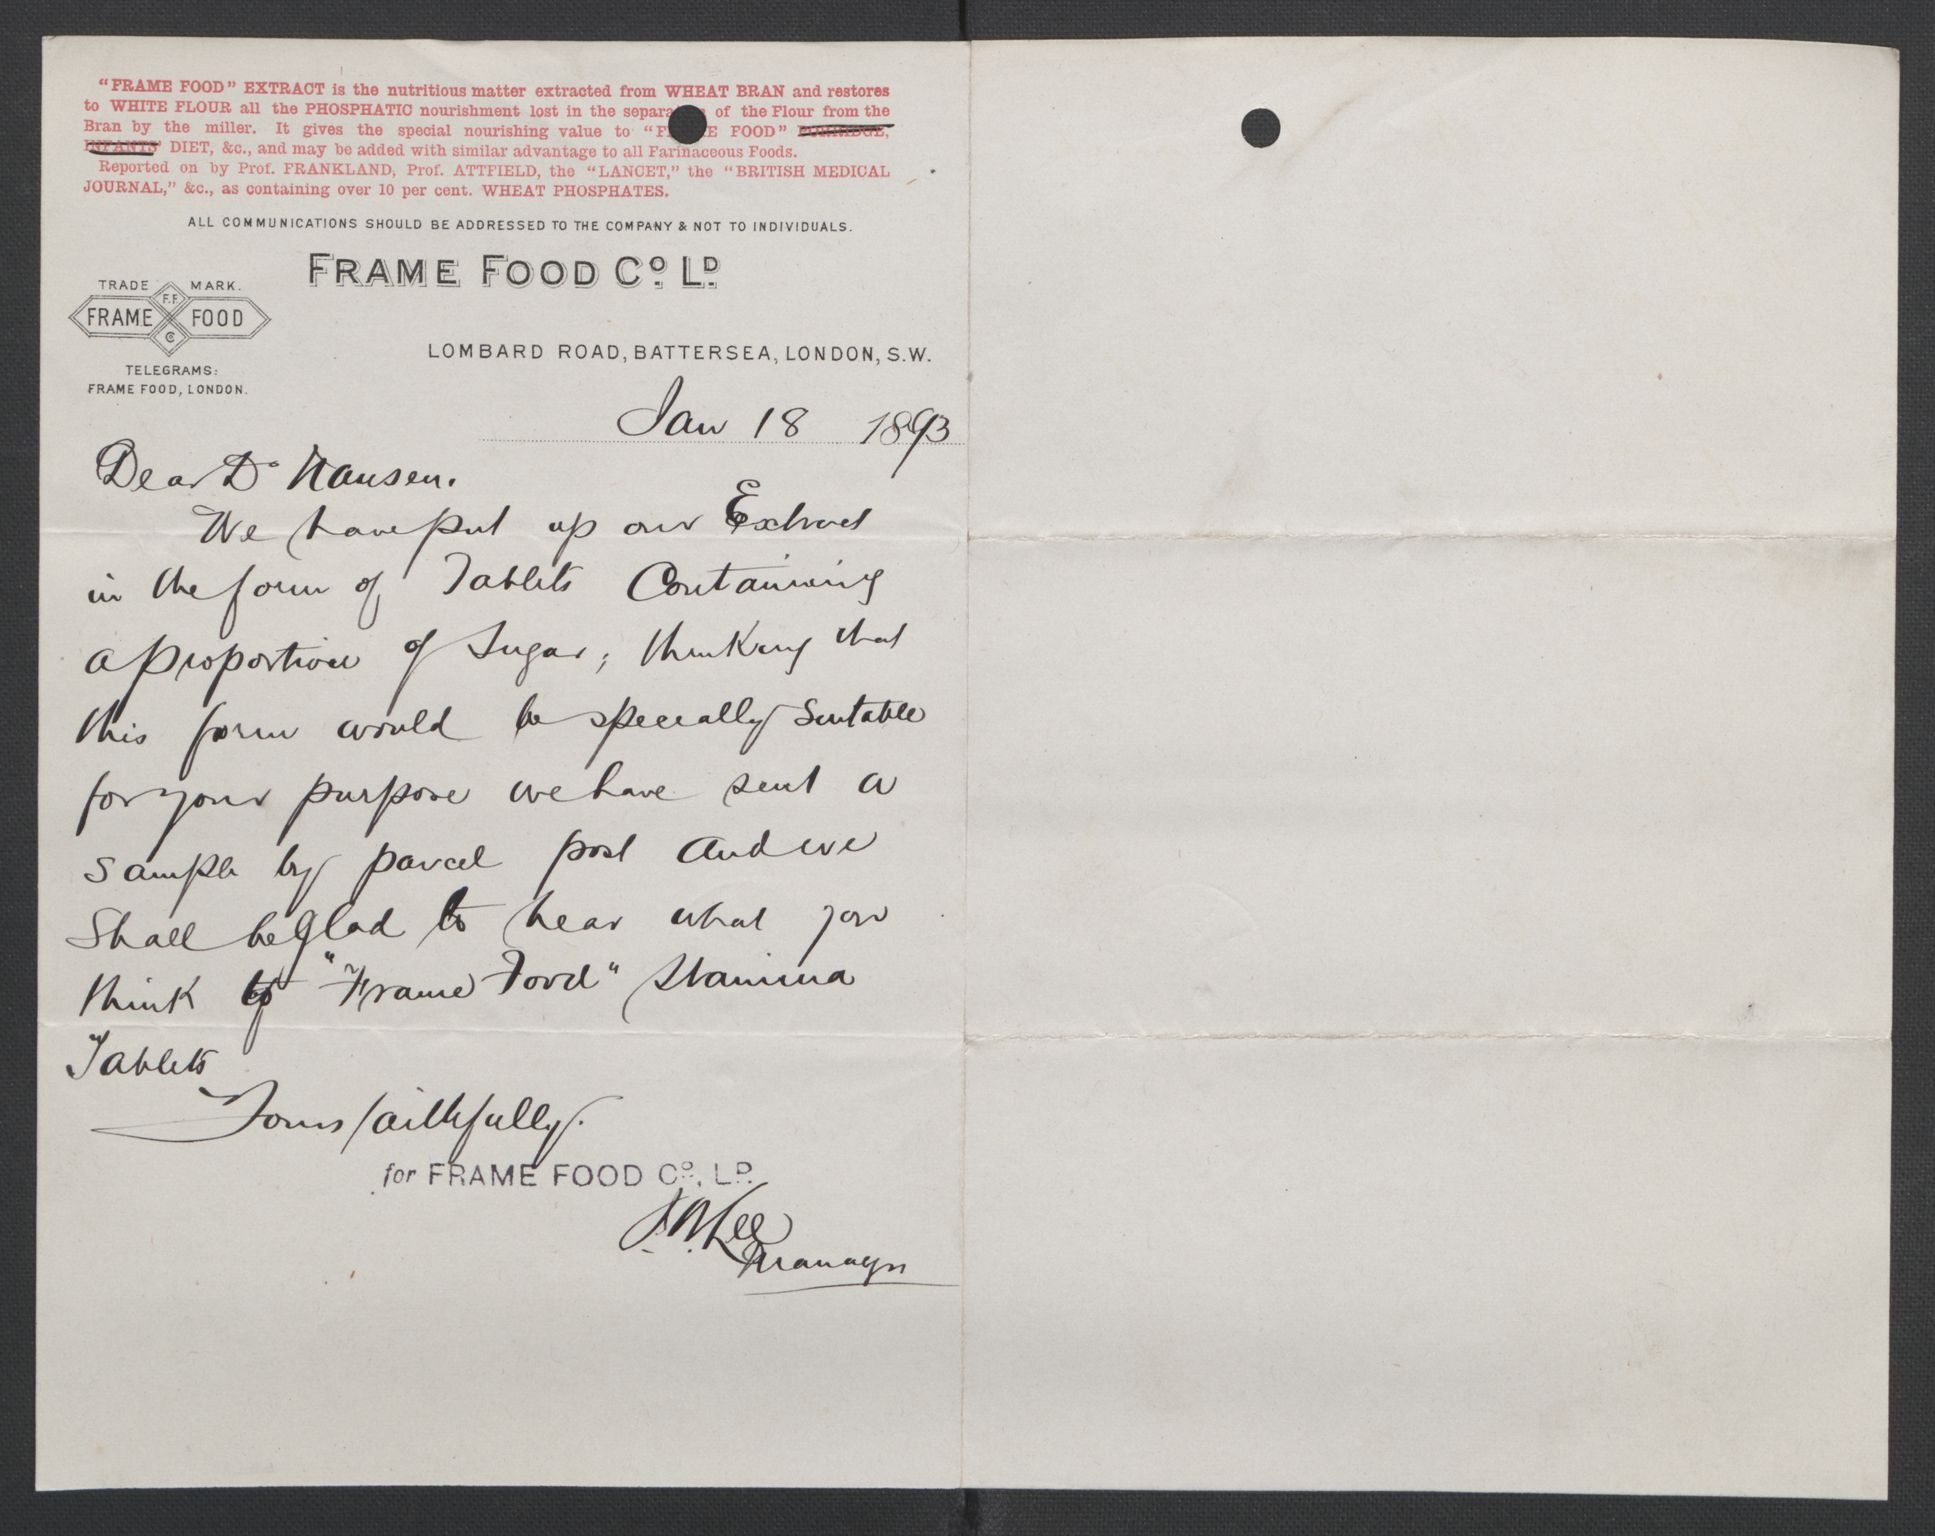 "FRAME FOOD" EXTRACT is the nutritious matter extracted from WHEAT BRAN and restores
to WHITE FLOUR all the PHOSPHATIC nourishment lost in the separa of the Flour from the
Bran by the miller. It gives the special nourishing value to "F E FOOD" PORRIDGE,
INFANTS' DIET, &c., and may be added with similar advantage to all Farinaceous Foods.
Reported on by Prof. FRANKLAND, Prof. ATTFIELD, the "LANCET," the "BRITISH MEDICAL
JOURNAL," &c., as containing over 10 per cent. WHEAT PHOSPHATES.
ALL COMMUNICATIONS SHOULD BE ADDRESSED TO THE COMPANY & NOT TO INDIVIDUALS.
FRAME FOOD Co. LD.
TRADE MARK.
F.F
FRAME FOOD
Co
TELEGRAMS:
FRAME FOOD, LONDON.
LOMBARD ROAD, BATTERSEA, LONDON, S.W.
Jan 18 1893
Dear Dr Nansen.
We have put up our Extract
in the form of Tablets Containing
a proportion of Sugar; thinking that
this form would be specially Suitable
for your purpose we have sent a
Sample by parcel post and we
Shall be Glad to hear what you
think of "Frame Food" Stamina
Tablets
Yours faithfully.
for FRAME FOOD Co. LD.
Lee
Manager